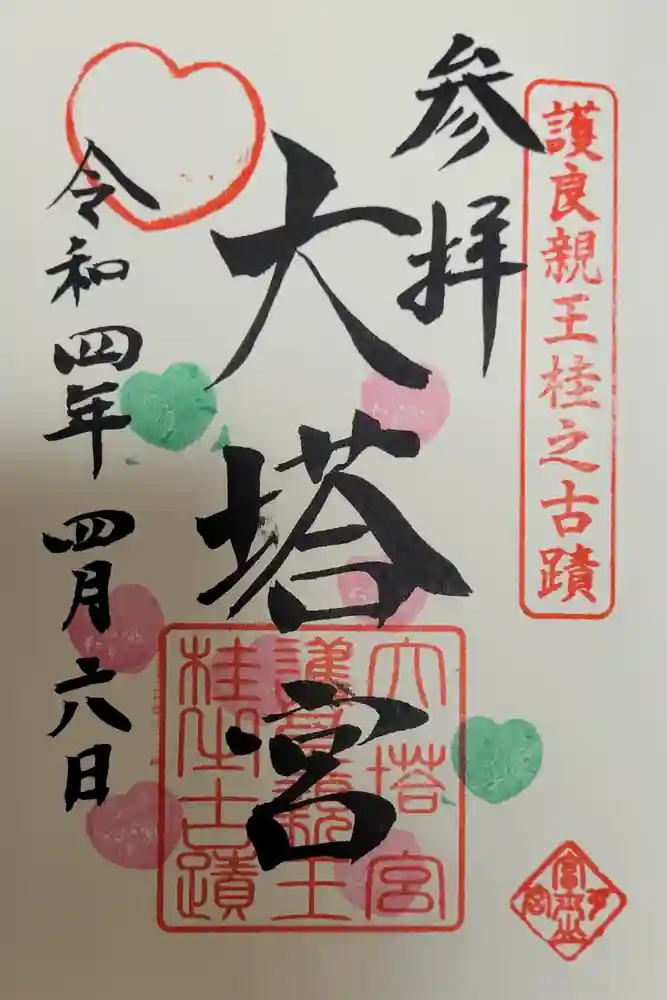 護良親王桂之古蹟
参拝
大塔宮
令和四年 四月六日
大塔宮
護良親王
桂之古蹟